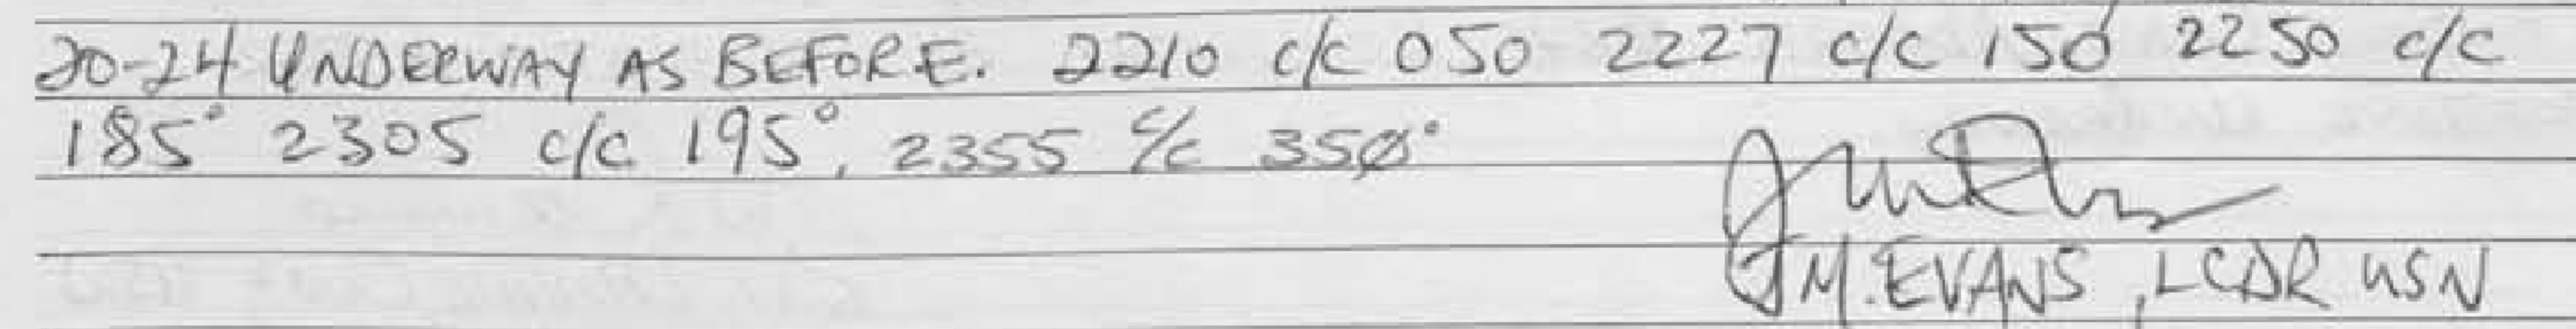 20-24 UNDERWAY AS BEFORE. 2210 c/c 050 2227 c/c 150 2250 c/c
185° 2305 c/c 195°, 2355 c/c 35Ø°
J M. EVANS, LCDR USN